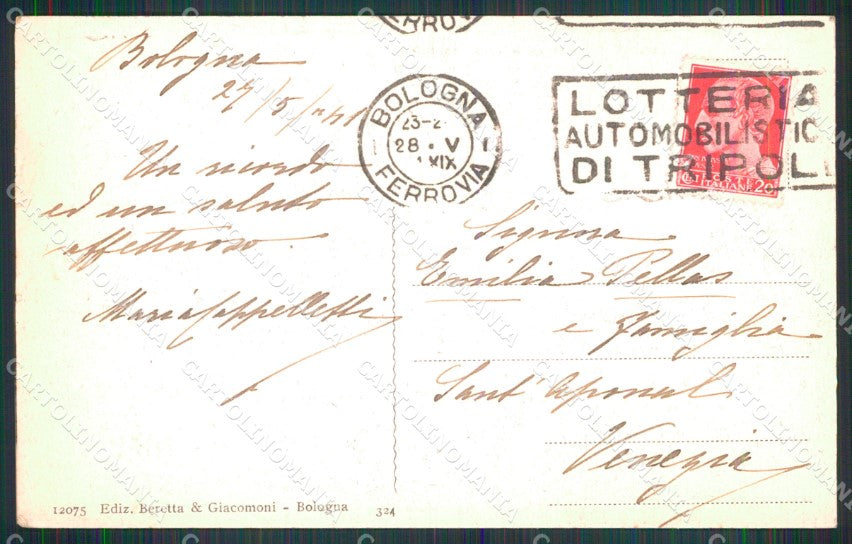 FERROV
Bologna
27/5/
Un ricordo
ed un saluto
affettuoso.
Maria Cappelletti
BOLOGNA
23-2
28 . V
XIX
FERROVIA
LOTTERIA
AUTOMOBILISTIC
DI TRIPOLI
POSTE ITALIANE 20
Signora
Emilia Pellas
e Famiglia
Sant' Aponal
Venezia
12075 Ediz. Beretta & Giacomoni - Bologna 324
CARTOLINOMANIA